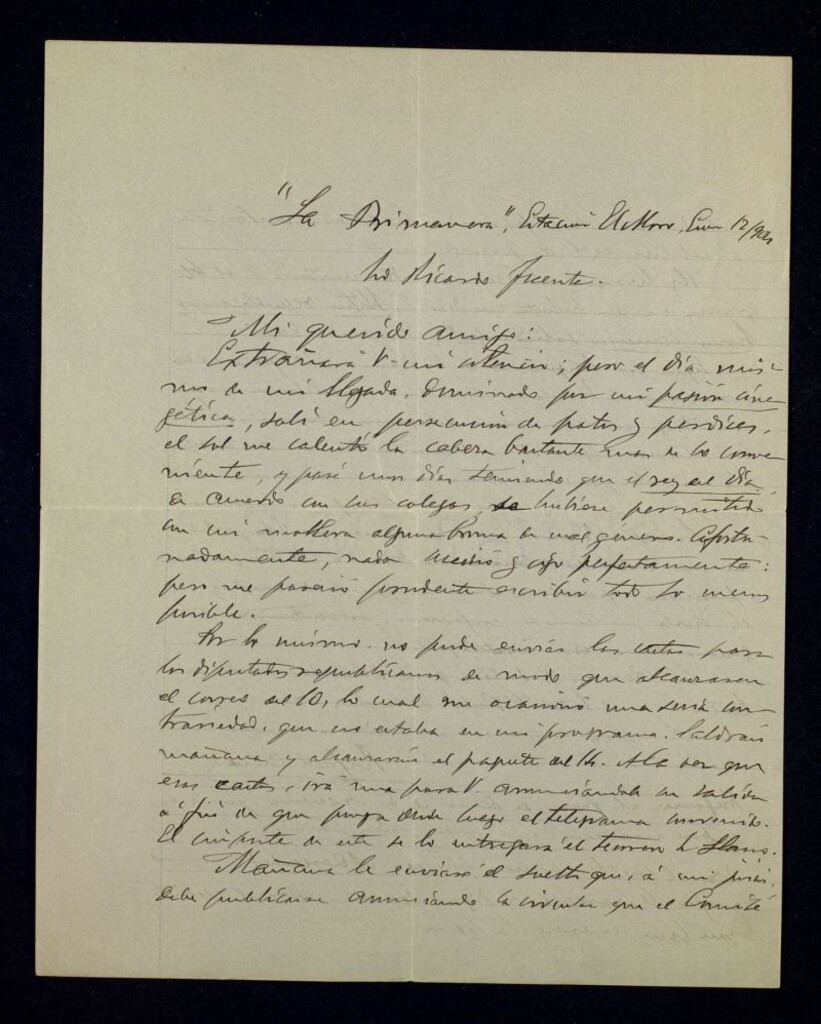 "La Primavera", Estación El Moro, Enero 12/904
Sr Ricardo Fuente.
Mi querido amigo:
Extrañará V. mi silencio; pero el día mis-
mo de mi llegada, dominado por mi pasión cine-
gética, salí en persecución de patos y perdices,
el sol me calentó la cabeza bastante más de lo conve-
niente, y pasé unos días temiendo que el rey del día,
de acuerdo con sus colegas, se hubiese permitido
con mi mollera alguna broma de mal género. Afortu-
nadamente, nada sucedió y sigo perfectamente:
pero me pareció prudente escribir todo lo menos
posible.
Por lo mismo no pude enviar las cartas para
los diputados republicanos de modo que alcanzasen
el correo del 10, lo cual me ocasionó una seria con-
trariedad, que no estaba en mi programa. Saldrán
mañana y alcanzarán el paquete del 14. A la vez que
esas cartas, irá una para V. anunciándole su salida
á fin de que ponga desde luego el telegrama convenido.
El importe de este se lo entregará el tesorero
Mañana le enviaré el suelto que, á mi juicio,
debe publicarse anunciando la circular que el Comité